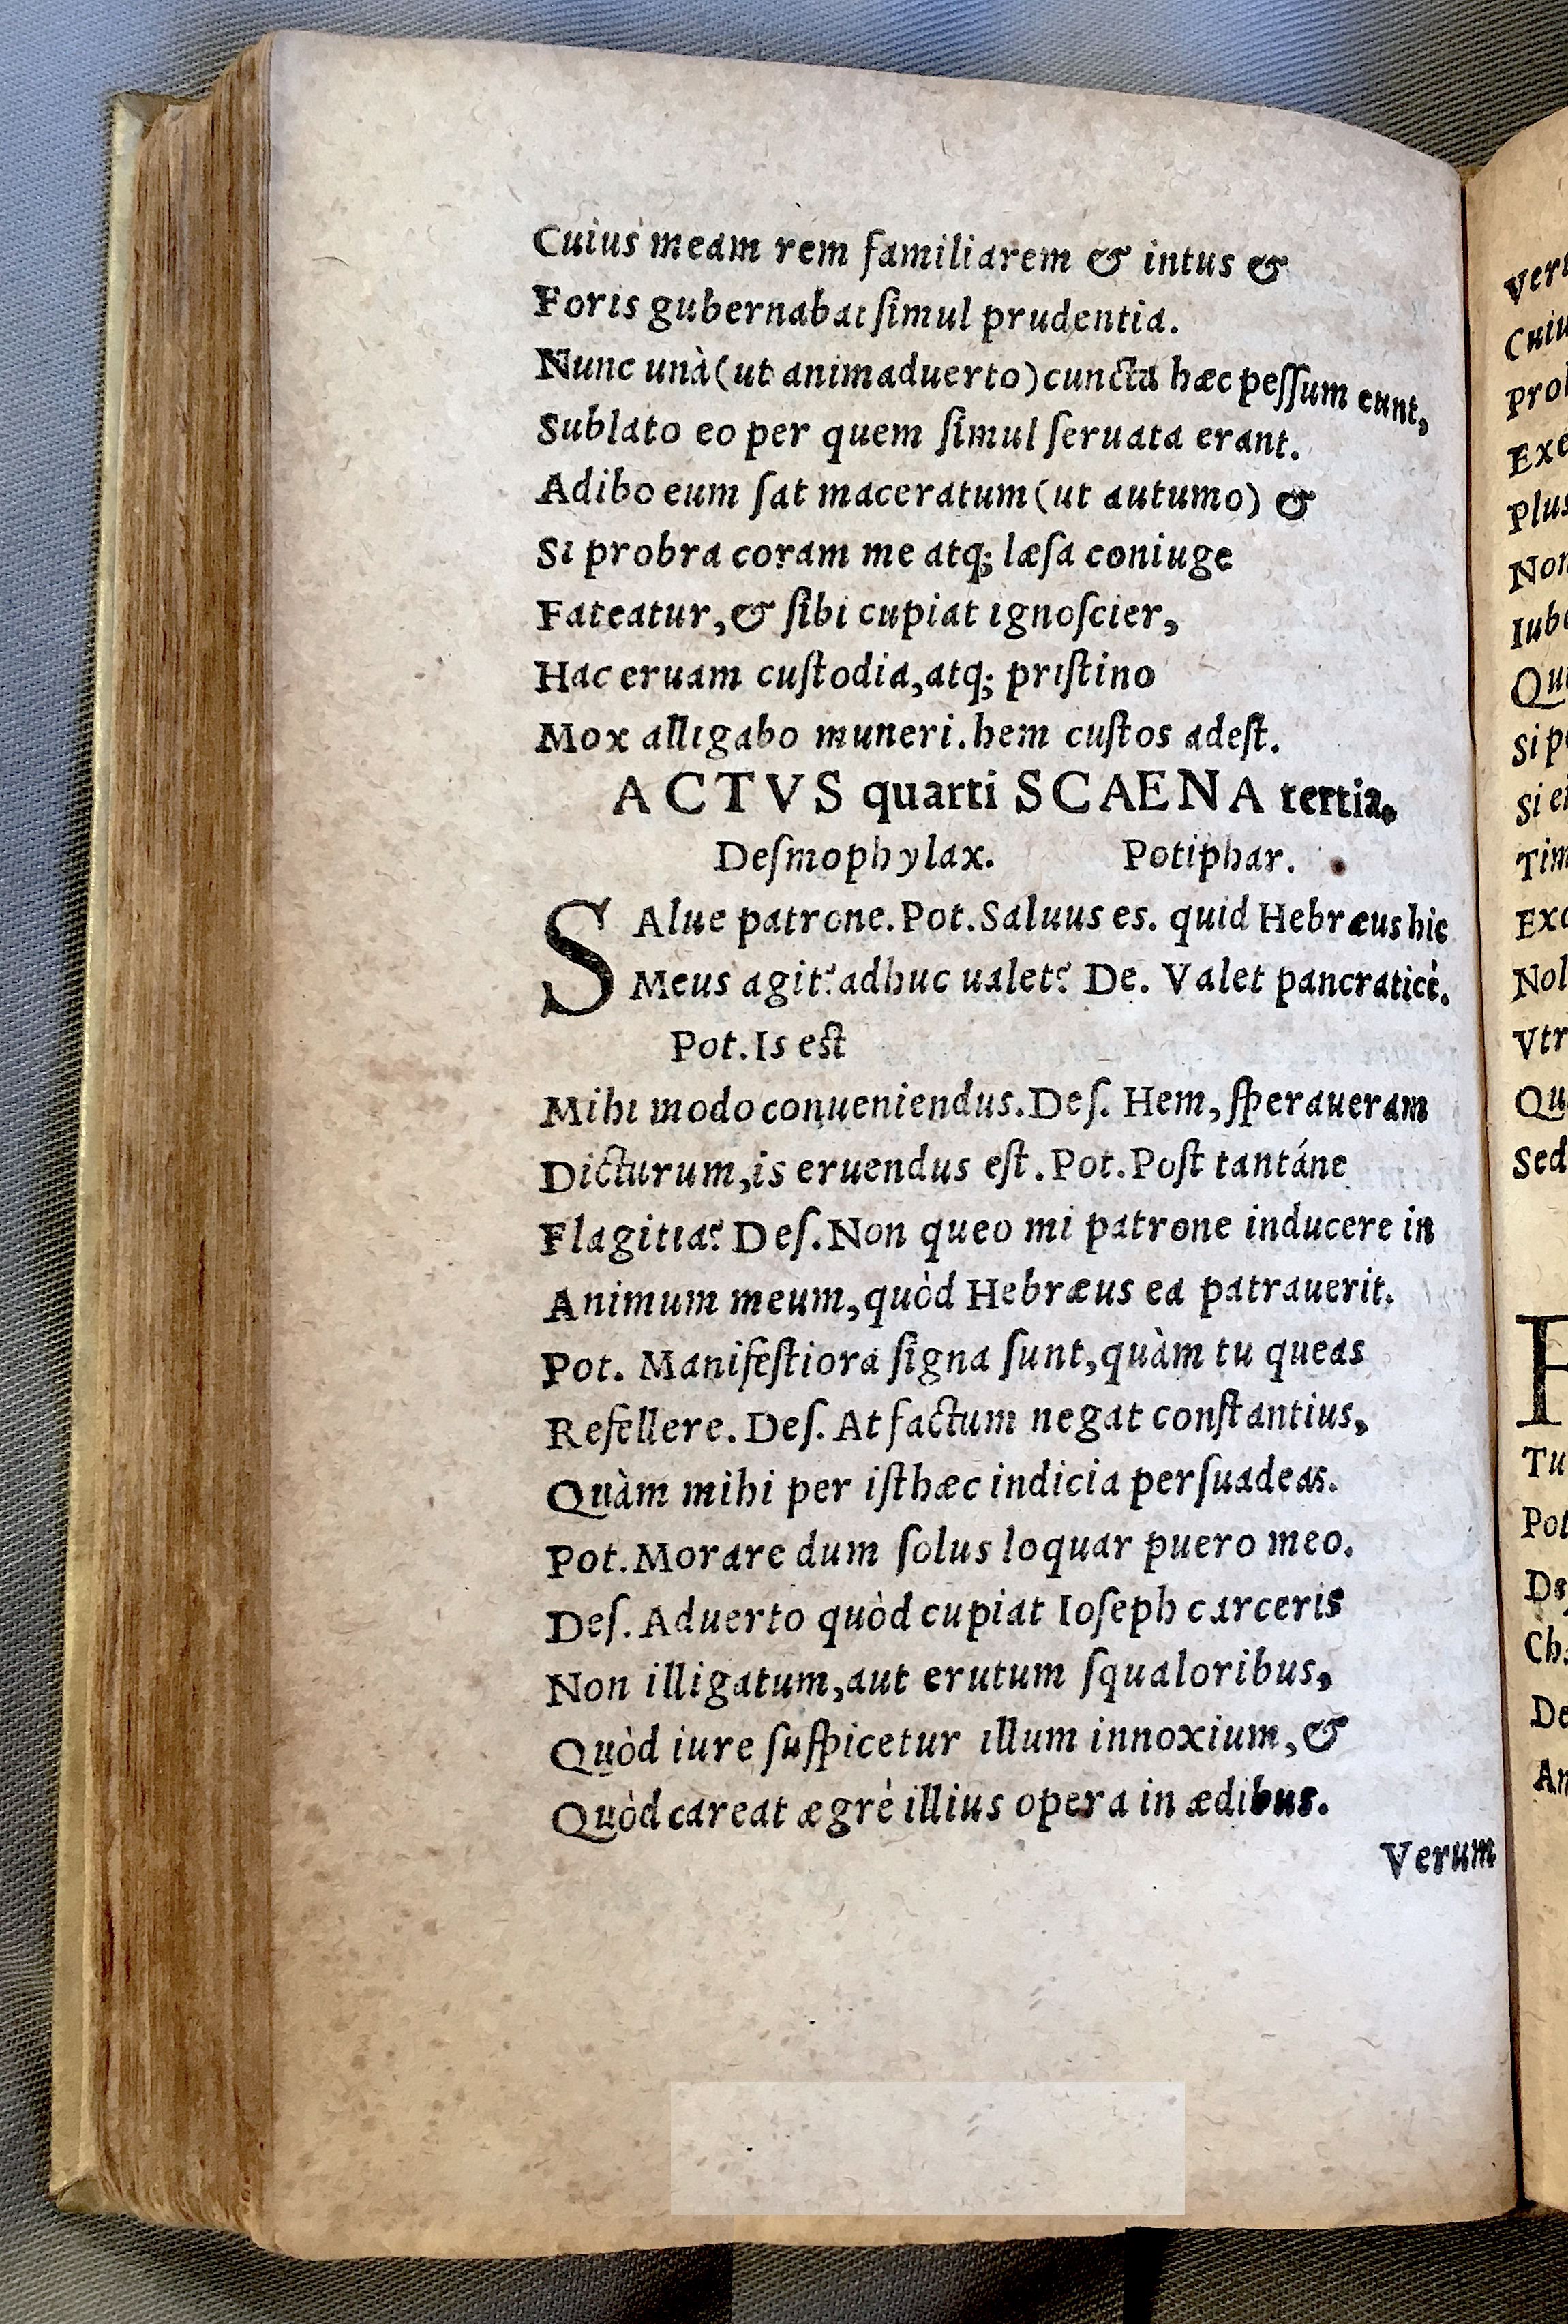 Cuius meam rem familiarem & intus &
Foris gubernabat ſimul prudentia.
Nunc unà (ut animaduerto) cuncta hæc peſſum eunt,
Sublato eo per quem ſimul ſeruata erant.
Adibo eum ſat maceratum (ut autumo) &
Si probra coram me atq; læſa coniuge
Fateatur, & ſibi cupiat ignoſcier,
Hac eruam cuſtodia, atq; priſtino
Mox alligabo muneri. hem cuſtos adeſt.
ACTVS quarti SCAENA tertia.
Deſmophylax. Potiphar.
SAlue patrone. Pot. Saluus es. quid Hebræus hic
Meus agit? adhuc ualet? De. Valet pancraticè.
Pot. Is est
Mihi modo conueniendus. Deſ. Hem, ſperaueram
Dicturum, is eruendus eſt. Pot. Poſt tantáne
Flagitia? Deſ. Non queo mi patrone inducere in
Animum meum, quòd Hebræus ea patrauerit.
Pot. Manifeſtiora ſigna ſunt, quàm tu queas
Refellere. Deſ. At factum negat conſtantius,
Quàm mihi per iſthæc indicia perſuadeas.
Pot. Morare dum ſolus loquar puero meo.
Deſ. Aduerto quòd cupiat Ioſeph carceris
Non illigatum, aut erutum ſqualoribus,
Quòd iure ſuſpicetur illum innoxium, &
Quòd careat ægrè illius opera in ædibus.
Verum
Cuiu
Exe
Plus
Non
Iube
Si p
Si e
Tim
Exc
Nol
Vtr
Qu
Sed
Tu
Pot
De